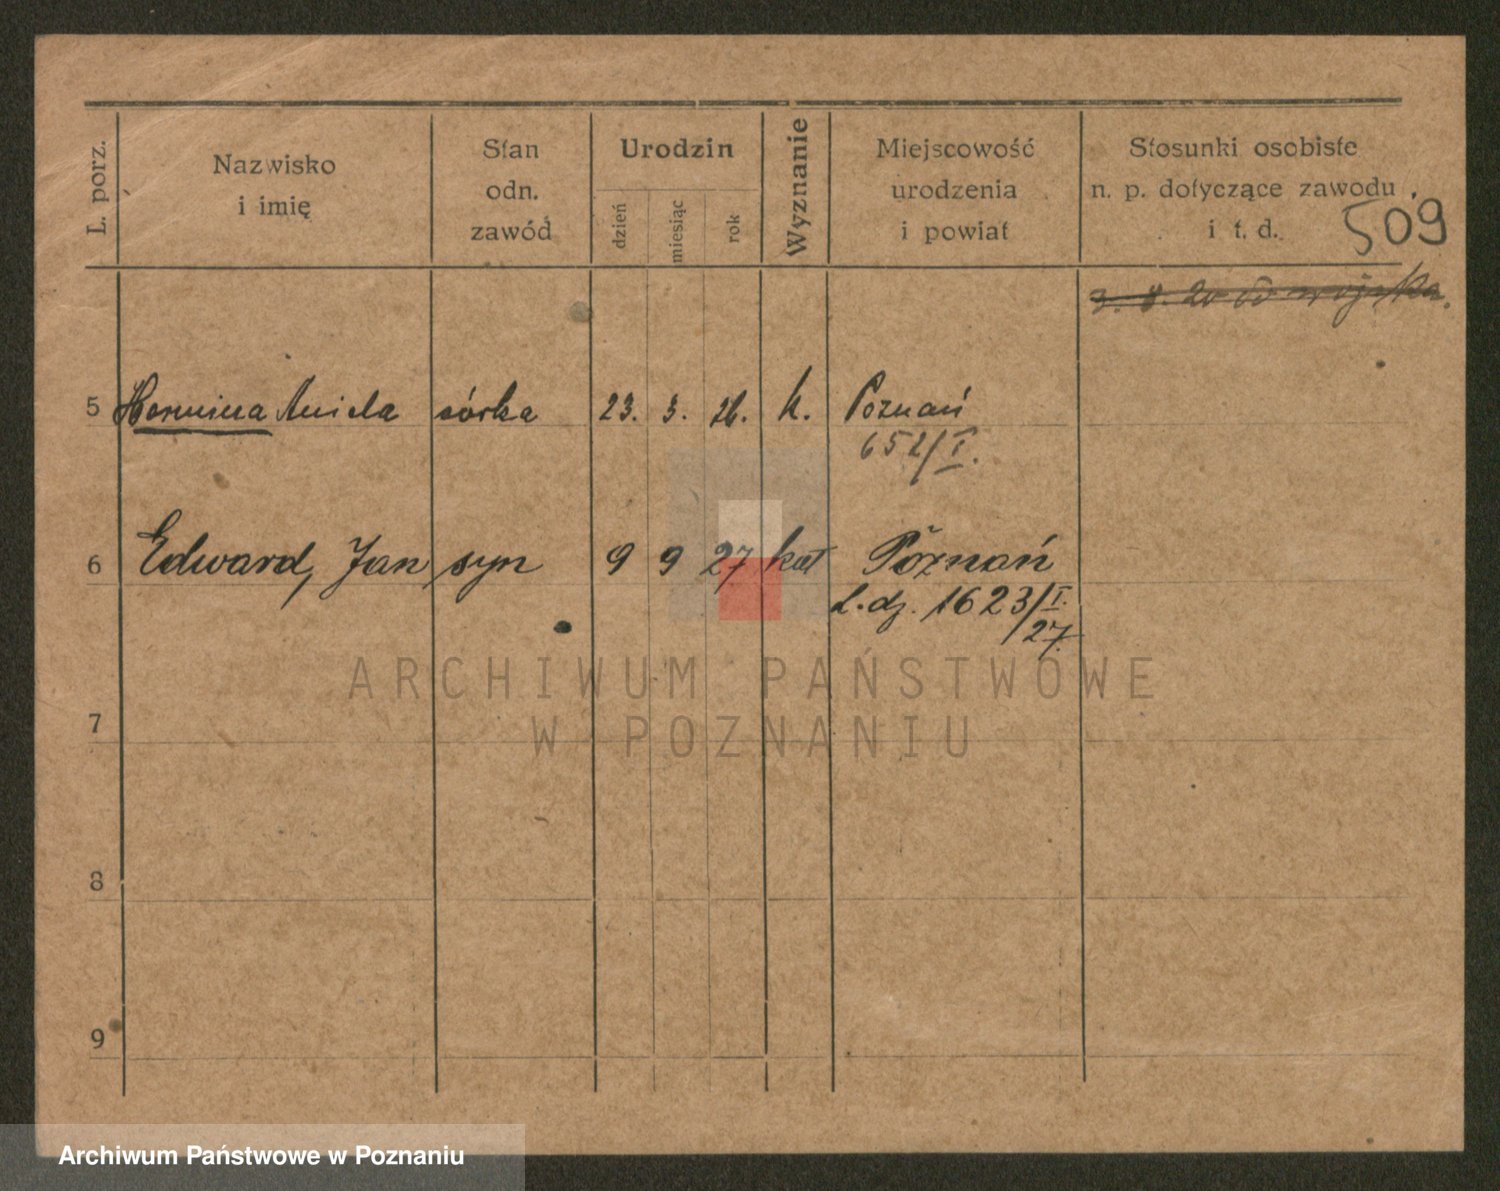 L. porz.
Nazwisko
i imię
Stan
odn.
zawód
Urodzin
dzień
miesiąc
rok
Wyznanie
Miejscowość
urodzenia
i powiat
Stosunki osobiste
n. p. dotyczące zawodu
i t. d.
509
3. 8. 20 do wojska.
5 Hermina Aniela córka 23. 3. 26. k. Poznań
652/I.
6 Edward, Jan syn 9 9 27 kat Poznań
L.dz. 1623/I.
27.
ARCHIWUM PAŃSTWOWE
W POZNANIU
7
8
9
Archiwum Państwowe w Poznaniu